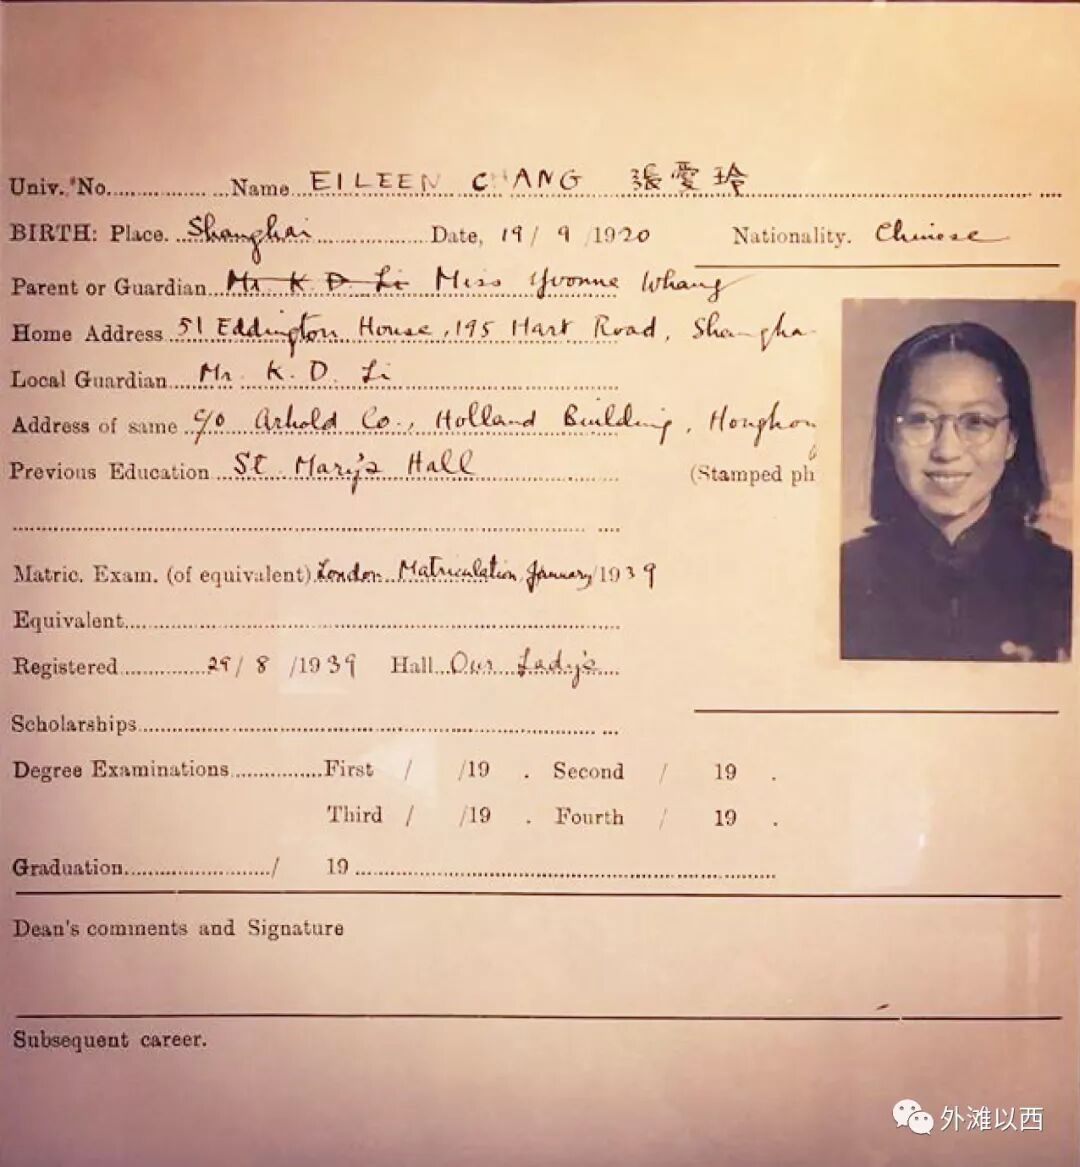 Univ. No. Name EILEEN CHANG 張愛玲
BIRTH: Place. Shanghai Date, 19/ 9 /1920 Nationality. Chinese
Parent or Guardian Mr. K. D. Li Miss Yvonne Whang
Home Address 51 Eddington House, 195 Hart Road, Shangha
Local Guardian Mr. K. D. Li
Address of same c/o Arnhold Co., Holland Building, Hongkon
Previous Education St. Mary's Hall (Stamped ph
Matric. Exam. (of equivalent) London Matriculation, January/1939
Equivalent
Registered 29/ 8 /1939 Hall Our Lady's
Scholarships
Degree Examinations First / /19 . Second / 19 .
Third / /19 . Fourth / 19 .
Graduation / 19
Dean's comments and Signature
Subsequent career.
外滩以西